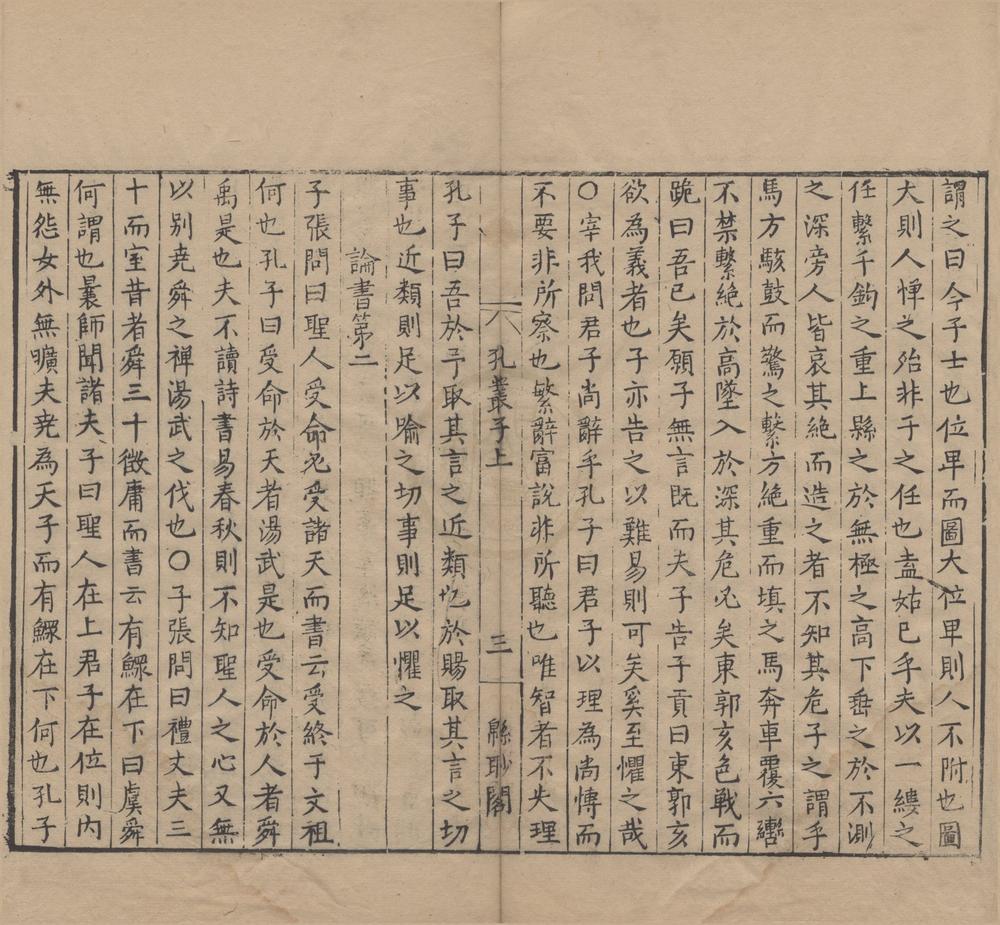 謂之曰今子士也位卑而圖大位卑則人不附也圖
大則人憚之殆非子之任也盍姑已乎夫以一縷之
任繫千鈞之重上縣之於無極之高下垂之於不測
之深旁人皆哀其絕而造之者不知其危子之謂乎
馬方駭鼓而驚之繫方絕重而填之馬奔車覆六轡
不禁繫絕於高墜入於深其危必矣東郭亥色戰而
跪曰吾已矣願子無言既而夫子告子貢曰東郭亥
欲為義者也子亦告之以難易則可矣奚至懼之哉
〇宰我問君子尚辭乎孔子曰君子以理為尚愽而
不要非所察也繁辭富說非所聽也唯智者不失理
孔叢子上
三
緜眇閣
孔子曰吾於予取其言之近類也於賜取其言之切
事也近類則足以喻之切事則足以懼之
論書第二
子張問曰聖人受命必受諸天而書云受終于文祖
何也孔子曰受命於天者湯武是也受命於人者舜
禹是也夫不讀詩書易春秋則不知聖人之心又無
以别尭舜之禪湯武之伐也〇子張問曰禮丈夫三
十而室昔者舜三十徵庸而書云有鰥在下曰虞舜
何謂也曩師聞諸夫子曰聖人在上君子在位則内
無怨女外無曠夫尭為天子而有鰥在下何也孔子